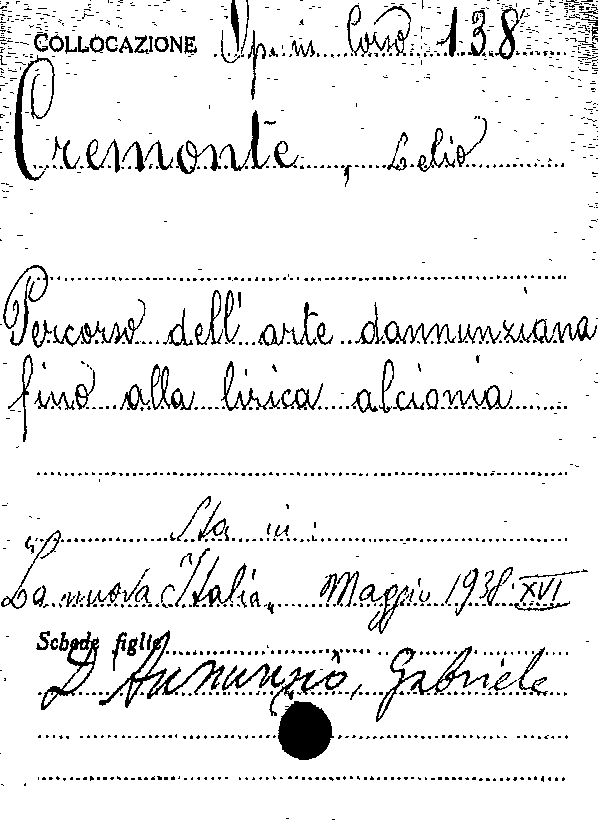 COLLOCAZIONE Op. in Corso 138
Cremonte, Lelio
Percorso dell'arte dannunziana
fino alla lirica alcionia
Sta in:
"La nuova Italia" Maggio 1938·XVI
Schede figlie
D'Annunzio, Gabriele